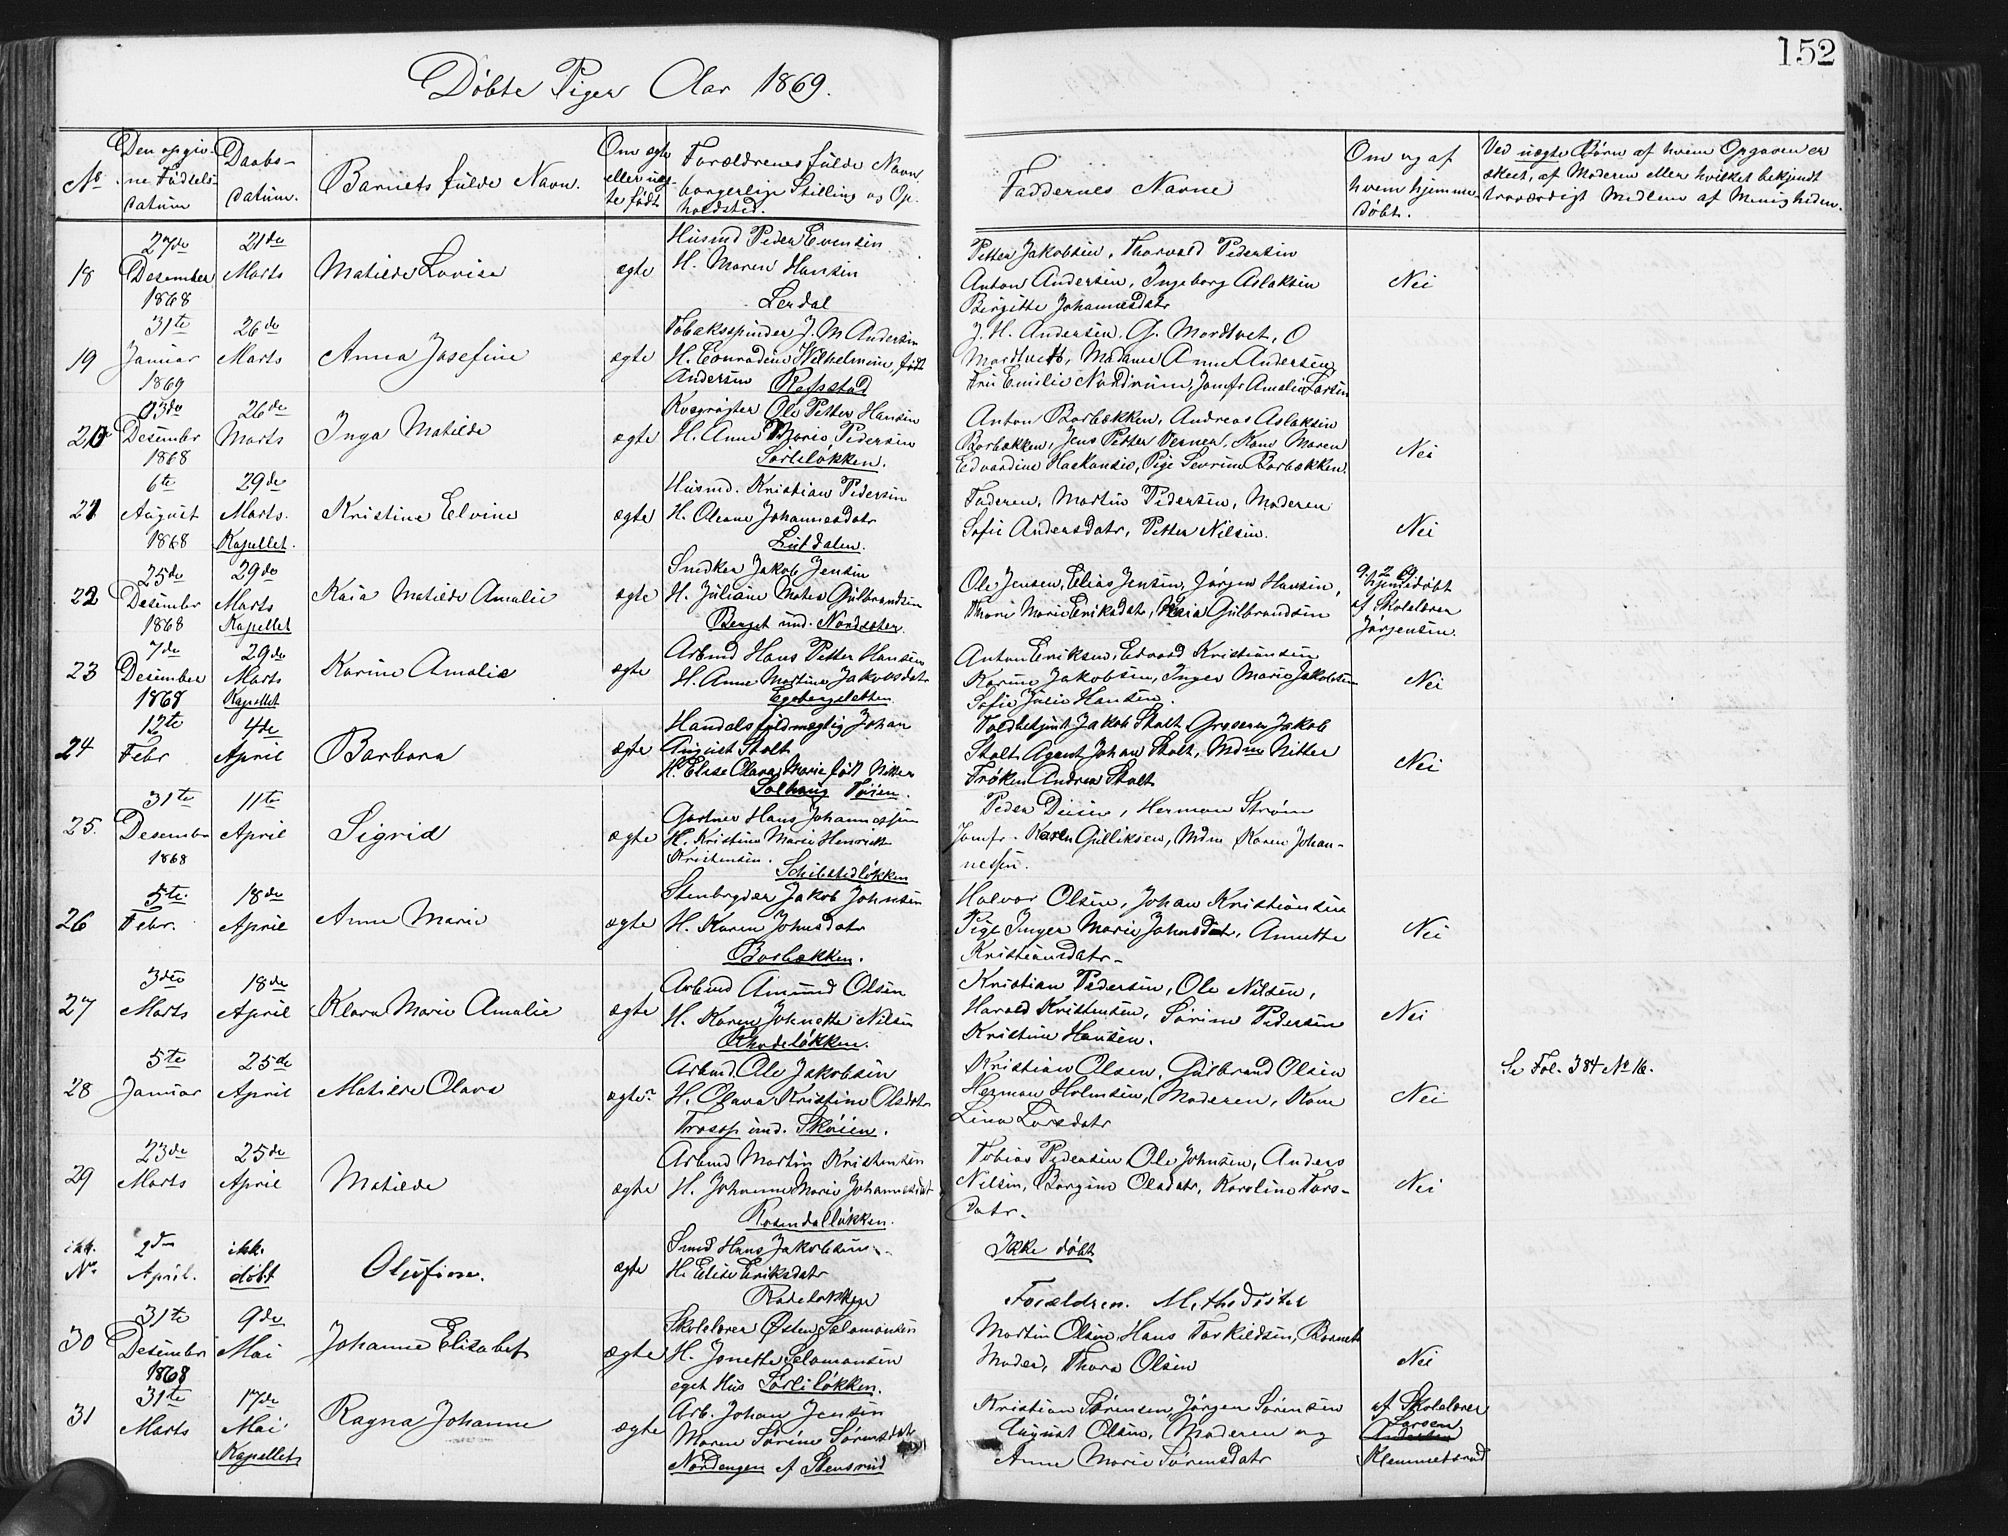 152
Döbte Piger Aar 1869.
No
Den opgiv-
ne Födsels-
datum
Daabs-
datum.
Barnets fulde Navn.
Om ægte
eller uæg-
te födt
Forældrenes fulde Navn
borgerlige Stilling og Op-
holdsted.
Faddernes Navne
Om og af
hvem hjemme-
döbt.
Ved uægte Börn af hvem Opgaven er
skeet, af Moderen eller hvilket bekjendt
troværdigt Medlem af Menigheden.
18
27de
Desember
1868
21de
Marts
Matilde Lovise
ægte
Husmd Peder Evensen
H. Maren Hansen
Lerdal
Petter Jakobsen, Thorvald Pedersen
Anton Andersen, Ingeborg Aslaksen
Birgitte Johannesdatr
Nei
19
31te
Januar
1869
26de
Marts
Anna Josefine
ægte
Tobaksspinder J. M Andersen
H. Conradine Wilhelmine, födt
Andersen
J. H. Andersen, G. Mordtvet, O
Mordtvedt, Madame Anne Andersen
Fru Emilie Noddrum, Jomfr Amalie Larsen
20
03de
Desembr
1868
26de
Marts
Inga Matilde
ægte
Kvægrögter Ole Petter Hansen
H. Anne Marie Pedersen
Sorlilökken.
Anton Borbækken, Andreas Aslaksen
Borbækken, Jens Petter Verner, Kone Maren
Edvardine Haakonsen, Pige Severine Borbækken.
Nei
21
6te
August
1868
29de
Marts.
Kapellet.
Kristine Elvine
ægte
Husmd. Kristian Pedersen
H. Oleane Johannesdatr
Lutdalen.
Faderen, Martin Pedersen, Moderen
Sofie Andersdatr, Petter Nilsen.
Nei
22
25de
Desembr
1868
29de
Marts
Kapellet
Kaia Matilde Amalie
ægte
Snedker Jakob Jensen
H. Juliane Matea Gulbrandsen
Berget und. Nordseter.
Ole Jensen, Elias Jensen, Jörgen Hansen,
Thora Marie Eriksdatr, Maria Gulbrandsen
hjemdöbt
af Skolelærer
Jörgensen.
23
7de
Desember
1868
29de
Marts
Kapellet
Karine Amalie
ægte
Arbmd Hans Petter Hansen
H. Anne Martine Jakobsdatr
Anton Eriksen, Edvard Kristiansen
Karine Jakobsen, Inger Marie Jakobsen
Sofie Julie Hansen.
Nei
24
12te
Febr
4de
April
Barbara
ægte
Handelsfuldmægtig Johan
August Stolt
H. Elise Clara Marie födt Nitter
Solhaug Töien.
Toldbetjent Jakob Stolt, Grosserer Jakob
Stolt, Agent Johan Stolt, Mdm Nitter
Fröken Andrea Stolt
Nei
25.
31te
Desembr
1868
11te
April
Sigrid
ægte
Gartner Hans Johannessen
H. Kristine Marie Henriette
Kristensen.
Schibstedlökken
Peder Diesen, Herman Ström
Jomfr. Karen Gulliksen, Mdm Karen Johan-
nessen.
26
5te.
Febr.
18de
April
Anne Marie
ægte
Stenbryder Jakob Johnsen
H. Karen Johnsdatr
Borbækken.
Halvor Olsen, Johan Kristiansen
Pige Inger Marie Johnsdatr, Annette
Kristiansdatr.
Nei
27
3die
Marts
18de
April
Klara Marie Amalie
ægte
Arbmd Amund Olsen
H. Karen Johnette Nilsen
Rhodelökken.
Kristian Pedersen, Ole Nilsen,
Harald Kristensen, Sörine Pedersen
Kristine Hansen.
Nei
28
5te
Januar
25de
April
Matilde Olava
ægte.
Arbmd. Ole Jakobsen
H. Olava Kristine Olsdatr
Trosop und. Sköien.
Kristian Olsen, Gulbrand Olsen
Herman Holmsen, Moderen, Kone
Lina Larsdatr
Nei
Se Fol. 384 No 16.
29
23de
Marts
25de
April
Matilde
ægte
Arbmd Martin Kristensen
H. Johanne Marie Johannesdatr
Rosendallökken.
Tobias Pedersen Ole Johnsen, Anders
Nilsen, Borgine Olsdatr, Karoline Lars-
datr.
Nei
ikk.
No.
2den
April.
ikk.
döbt
Olufine.
ægte
Smed Hans Jakobsen.
H. Elise Eriksdatr
Rodelökken
Ikke döbt
Forældren. Methodister
30
31te
Desembr
1868
9de
Mai
Johanne Elisabet
ægte
Skolelærer Østen Salomonsen
H. Jonette Salomonsen
eget Hus Sorlilökken.
Martin Olsen, Hans Torkildsen, Barnets
Moder, Thora Olsen
Nei
31
31te
Marts
17de
Mai
Kapellet
Ragna Johanne
ægte
Arb. Johan Jensen
Maren Sörine Sörensdatr
Nordengen af Stensrud
Kristian Sörensen, Jörgen Sörensen
August Olsen, Moderen og
Anne Marie Sörensdatr
af Skolelærer
Larsen
Klemmetsrud